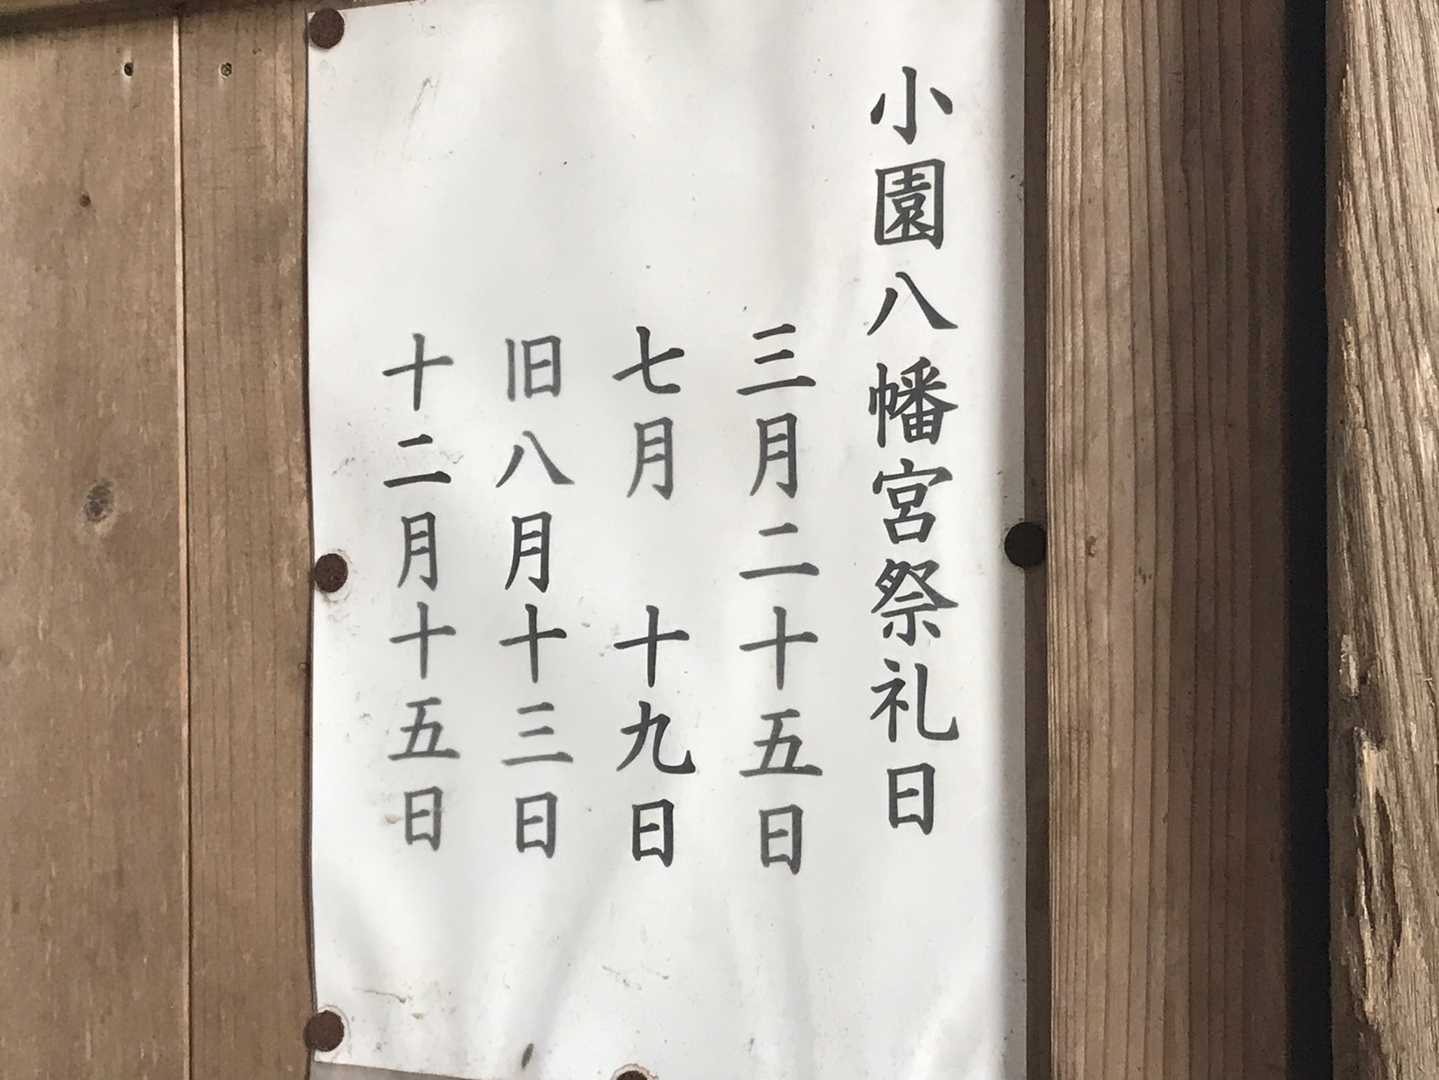 小園八幡宮祭礼日
三月二十五日
七月　十九日
旧八月十三日
十二月十五日